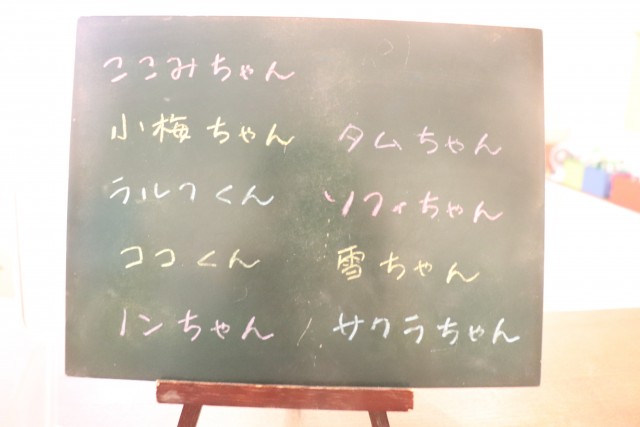 ここみちゃん
小梅ちゃん
ラルフくん
ココくん
ノンちゃん
タムちゃん
ソフィちゃん
雪ちゃん
サクラちゃん